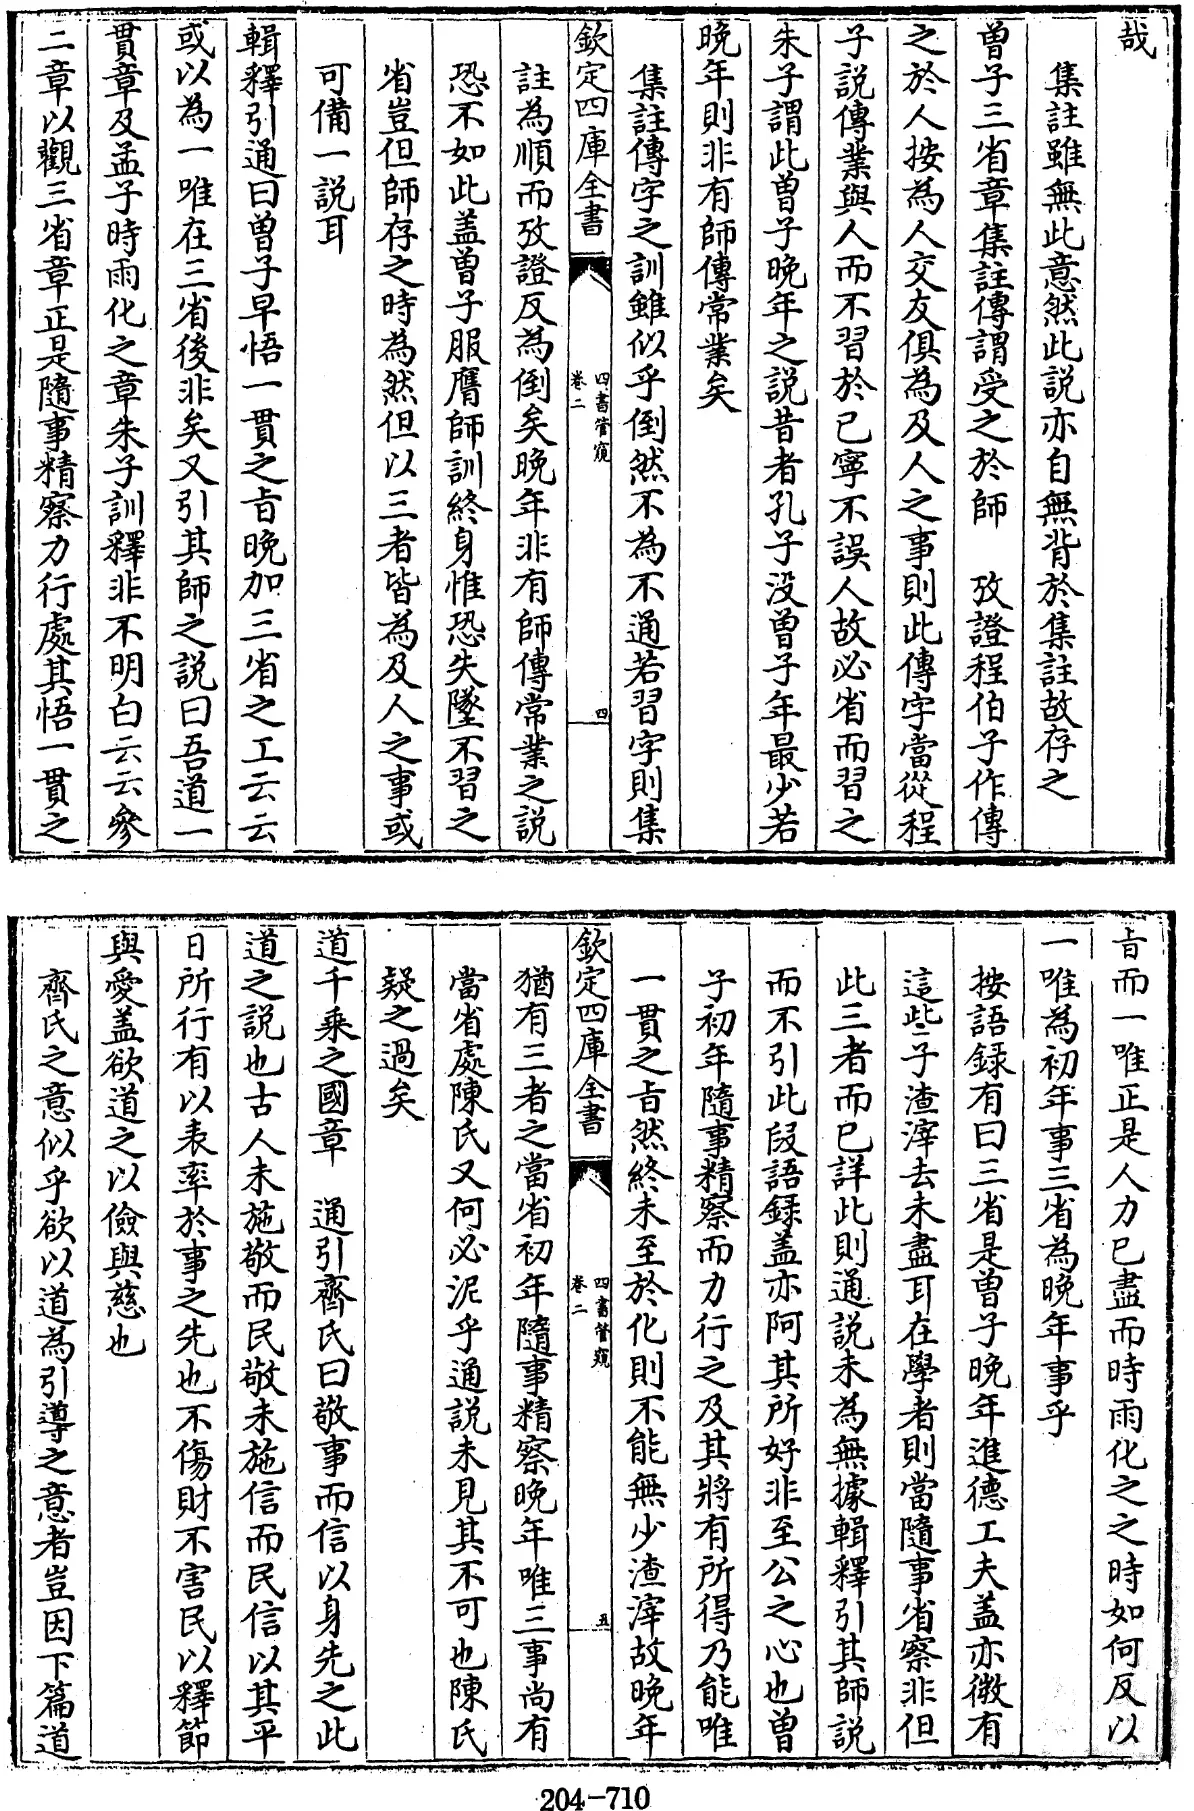 哉
集註雖無此意然此説亦自無背於集註故存之
曾子三省章集註傳謂受之於師　攷證程伯子作傳
之於人按為人交友俱為及人之事則此傳字當從程
子説傳業與人而不習於己寧不誤人故必省而習之
朱子謂此曾子晚年之説昔者孔子没曾子年最少若
晚年則非有師傳常業矣
集註傳字之訓雖似乎倒然不為不通若習字則集
欽定四庫全書
四書管窺
卷二
四
註為順而攷證反為倒矣晚年非有師傳常業之説
恐不如此盖曾子服膺師訓終身惟恐失墜不習之
省豈但師存之時為然但以三者皆為及人之事或
可備一説耳
輯釋引通曰曾子早悟一貫之旨晚加三省之工云云
或以為一唯在三省後非矣又引其師之説曰吾道一
貫章及孟子時雨化之章朱子訓釋非不明白云云參
二章以觀三省章正是隨事精察力行處其悟一貫之
旨而一唯正是人力已盡而時雨化之之時如何反以
一唯為初年事三省為晚年事乎
按語録有曰三省是曾子晚年進德工夫盖亦微有
這些子渣滓去未盡耳在學者則當隨事省察非但
此三者而已詳此則通説未為無據輯釋引其師説
而不引此段語録盖亦阿其所好非至公之心也曾
子初年隨事精察而力行之及其將有所得乃能唯
一貫之旨然終未至於化則不能無少渣滓故晚年
欽定四庫全書
四書管窺
卷二
五
猶有三者之當省初年隨事精察晚年唯三事尚有
當省處陳氏又何必泥乎通説未見其不可也陳氏
疑之過矣
道千乘之國章　通引齊氏曰敬事而信以身先之此
道之説也古人未施敬而民敬未施信而民信以其平
日所行有以表率於事之先也不傷財不害民以釋節
與愛盖欲道之以儉與慈也
齊氏之意似乎欲以道為引導之意者豈因下篇道
204-710